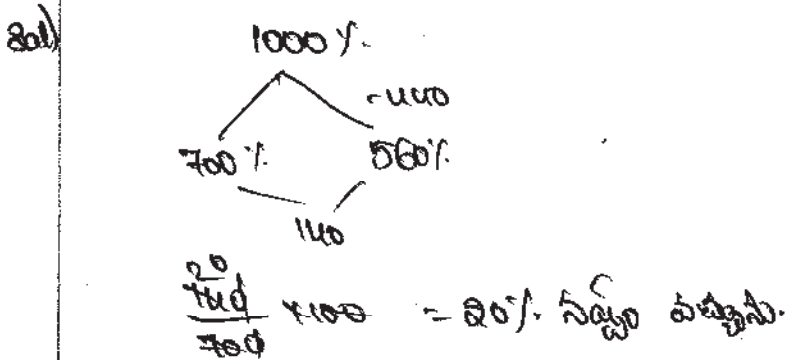 Sol)
1000 %.
-440
700 %.
560 %.
140
20
140/700 × 100 = 20 %. నష్టం వచ్చును.